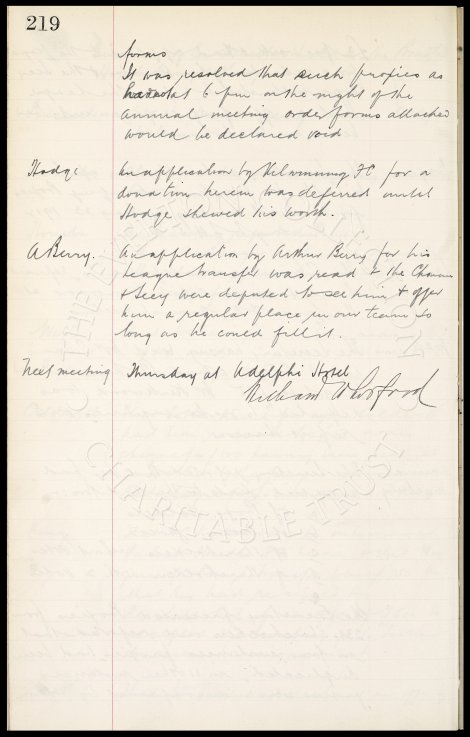 219
forms
It was resolved that such proxies as
had not at 6 pm on the night of the
annual meeting order forms attached
would be declared void
Hodge An application by Kilwinning FC for a
donation herein was deferred until
Hodge shewed his worth.
A Berry. An application by Arthur Berry for his
league transfer was read & the Chairman
& Secy were deputed to see him & offer
him a regular place in our team so
long as he could fill it.
Next meeting Thursday at Adelphi Hotel
CHARITABLE TRUST